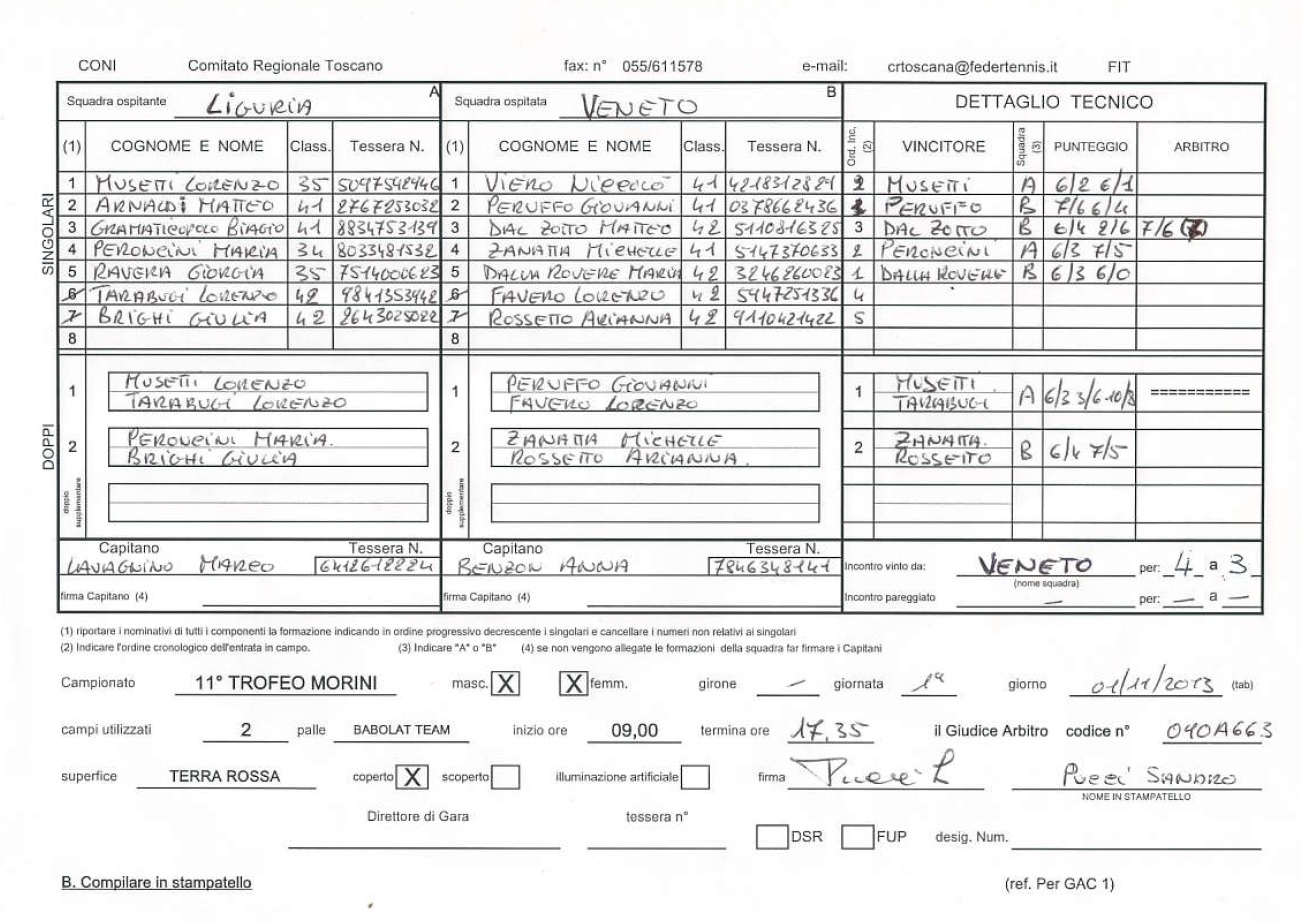 CONI Comitato Regionale Toscano fax: n° 055/611578 e-mail: crtoscana@federtennis.it FIT
Squadra ospitante LIGURIA A Squadra ospitata VENETO B DETTAGLIO TECNICO
(1) COGNOME E NOME Class. Tessera N. (1) COGNOME E NOME Class. Tessera N. Ord. Inc. (2) VINCITORE Squadra (3) PUNTEGGIO ARBITRO
SINGOLARI
1 MUSETTI LORENZO 35 5097542946 1 VIERO NICCOLÒ 41 4218312821 2 MUSETTI A 6/2 6/1
2 ARNALDI MATTEO 41 2767253032 2 PERUFFO GIOVANNI 41 0378662436 PERUFFO B 7/6 6/4
3 GRAMATICOPOLO BIAGIO 41 8834753139 3 DAL ZOTTO MATTEO 42 5110816325 3 DAL ZOTTO B 6/4 2/6 7/6
4 PERONCINI MARIA 34 8033481532 4 ZANATTA MICHELLE 41 5147370653 2 PERONCINI A 6/3 7/5
5 RAVERA GIORGIA 35 7514000623 5 DALLA ROVERE MARIA 42 3246260023 1 DALLA ROVERE B 6/3 6/0
6 TARABUGI LORENZO 42 9841353942 6 FAVERO LORENZO 42 5947251336 4
7 BRIGHI GIULIA 42 2643025022 7 ROSSETTO ARIANNA 42 9110421422 5
8 8
DOPPI
1 MUSETTI LORENZO 1 PERUFFO GIOVANNI 1 MUSETTI A 6/3 3/6 10/8 ===========
TARABUGI LORENZO FAVERO LORENZO TARABUGI
2 PERONCINI MARIA. 2 ZANATTA MICHELLE 2 ZANATTA. B 6/4 7/5
BRIGHI GIULIA ROSSETTO ARIANNA. ROSSETTO
doppio supplementare doppio supplementare
Capitano Tessera N. Capitano Tessera N.
LAVAGNINO MARCO 6412612224 BENZON ANNA 7846348141 Incontro vinto da: VENETO per: 4 a 3
(nome squadra)
firma Capitano (4) firma Capitano (4) Incontro pareggiato — per: — a —
(1) riportare i nominativi di tutti i componenti la formazione indicando in ordine progressivo decrescente i singolari e cancellare i numeri non relativi ai singolari
(2) Indicare l'ordine cronologico dell'entrata in campo. (3) Indicare "A" o "B" (4) se non vengono allegate le formazioni della squadra far firmare i Capitani
Campionato 11° TROFEO MORINI masc. X X femm. girone — giornata 1ª giorno 01/11/2013 (tab)
campi utilizzati 2 palle BABOLAT TEAM inizio ore 09,00 termina ore 17,35 il Giudice Arbitro codice n° 040A663
superfice TERRA ROSSA coperto X scoperto illuminazione artificiale firma PUCCI SANDRO
NOME IN STAMPATELLO
Direttore di Gara tessera n°
DSR FUP desig. Num.
B. Compilare in stampatello (ref. Per GAC 1)